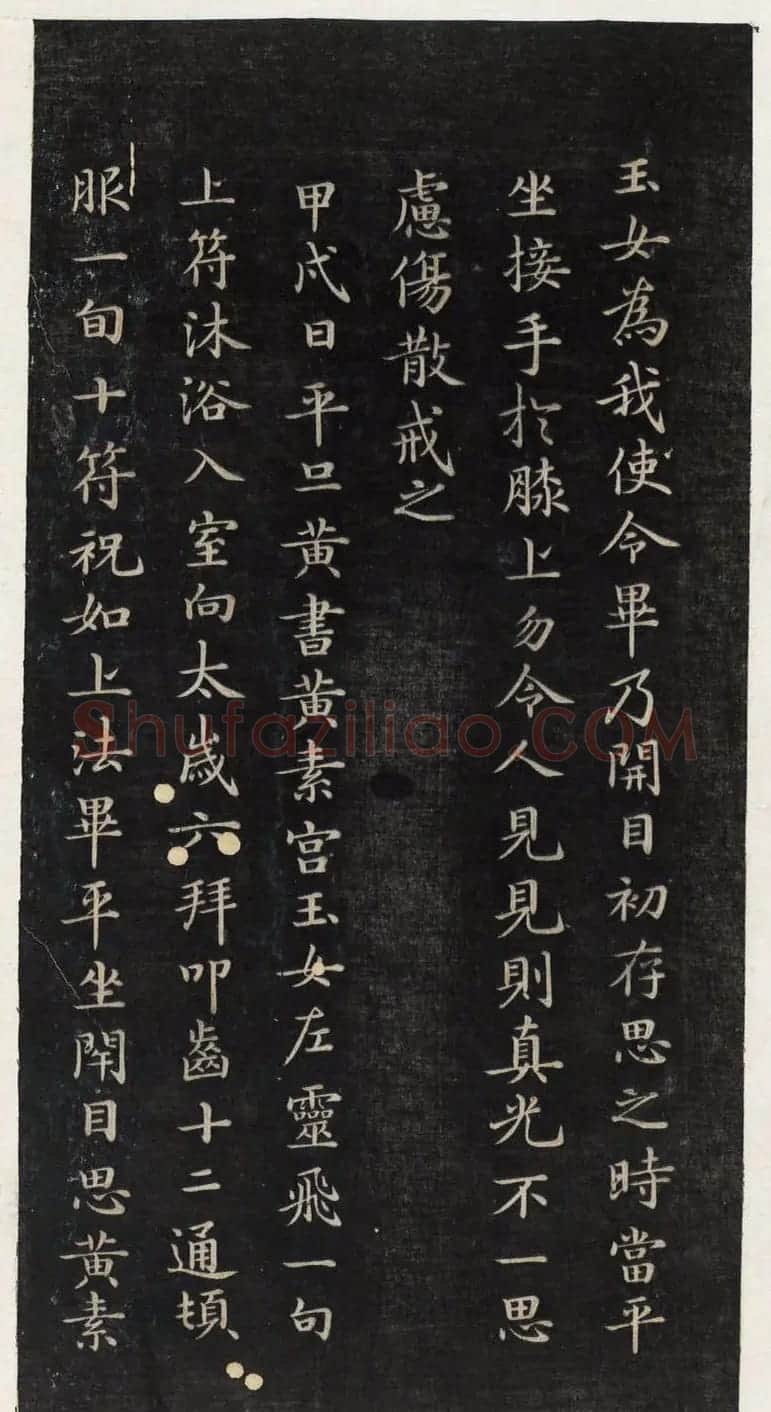 玉女為我使令畢乃開目初存思之時當平
坐接手於膝上勿令人見見則真光不一思
慮傷散戒之
甲戌日平旦黃書黃素宮玉女左靈飛一旬
上符沐浴入室向太歲六拜叩齒十二通頓
服一旬十符祝如上法畢平坐閇目思黃素
Shufaziliao.COM